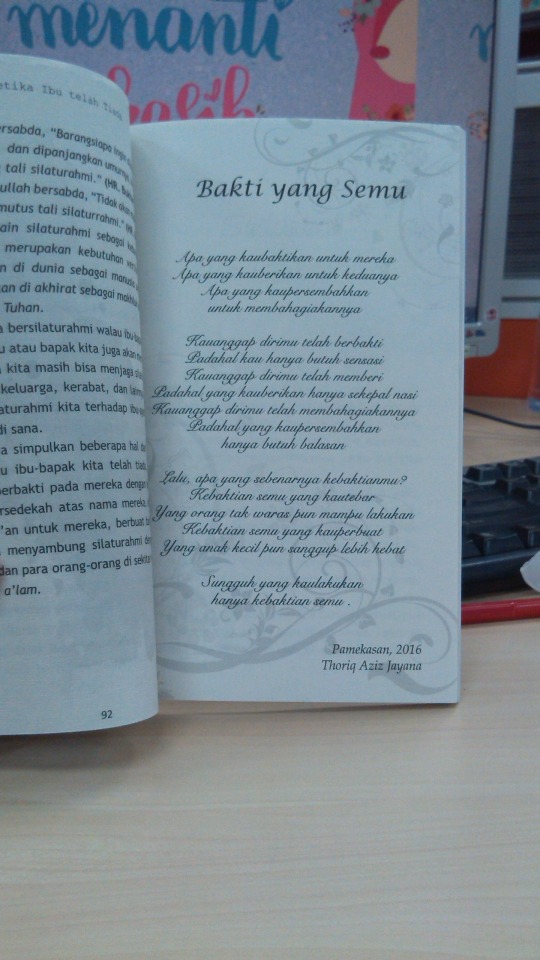 menanti
kasih
etika Ibu telah Tiada
ersabda, "Barangsiapa ingin
dan dipanjangkan umurnya,
tali silaturahmi." (HR.
ullah bersabda, "Tidak akan
mutus tali silaturrahmi."
ain silaturahmi sebagai
merupakan kebutuhan
n di dunia sebagai manusia
an di akhirat sebagai makhluk
Tuhan.
a bersilaturahmi walau ibu-bapak
u atau bapak kita juga akan
kita masih bisa menjaga
keluarga, kerabat, dan
aturahmi kita terhadap
di sana.
a simpulkan beberapa hal
u ibu-bapak kita telah tiada
erbakti pada mereka dengan
ersedekah atas nama mereka,
'an untuk mereka, berbuat
menyambung silaturahmi
dan para orang-orang di sekitar
a'lam.
92
Bakti yang Semu
Apa yang kaubaktikan untuk mereka
Apa yang kauberikan untuk keduanya
Apa yang kaupersembahkan
untuk membahagiakannya
Kauanggap dirimu telah berbakti
Padahal kau hanya butuh sensasi
Kauanggap dirimu telah memberi
Padahal yang kauberikan hanya sekepal nasi
Kauanggap dirimu telah membahagiakannya
Padahal yang kaupersembahkan
hanya butuh balasan
Lalu, apa yang sebenarnya kebaktianmu?
Kebaktian semu yang kautebar
Yang orang tak waras pun mampu lakukan
Kebaktian semu yang kauperbuat
Yang anak kecil pun sanggup lebih hebat
Sungguh yang kaulakukan
hanya kebaktian semu .
Pamekasan, 2016
Thoriq Aziz Jayana